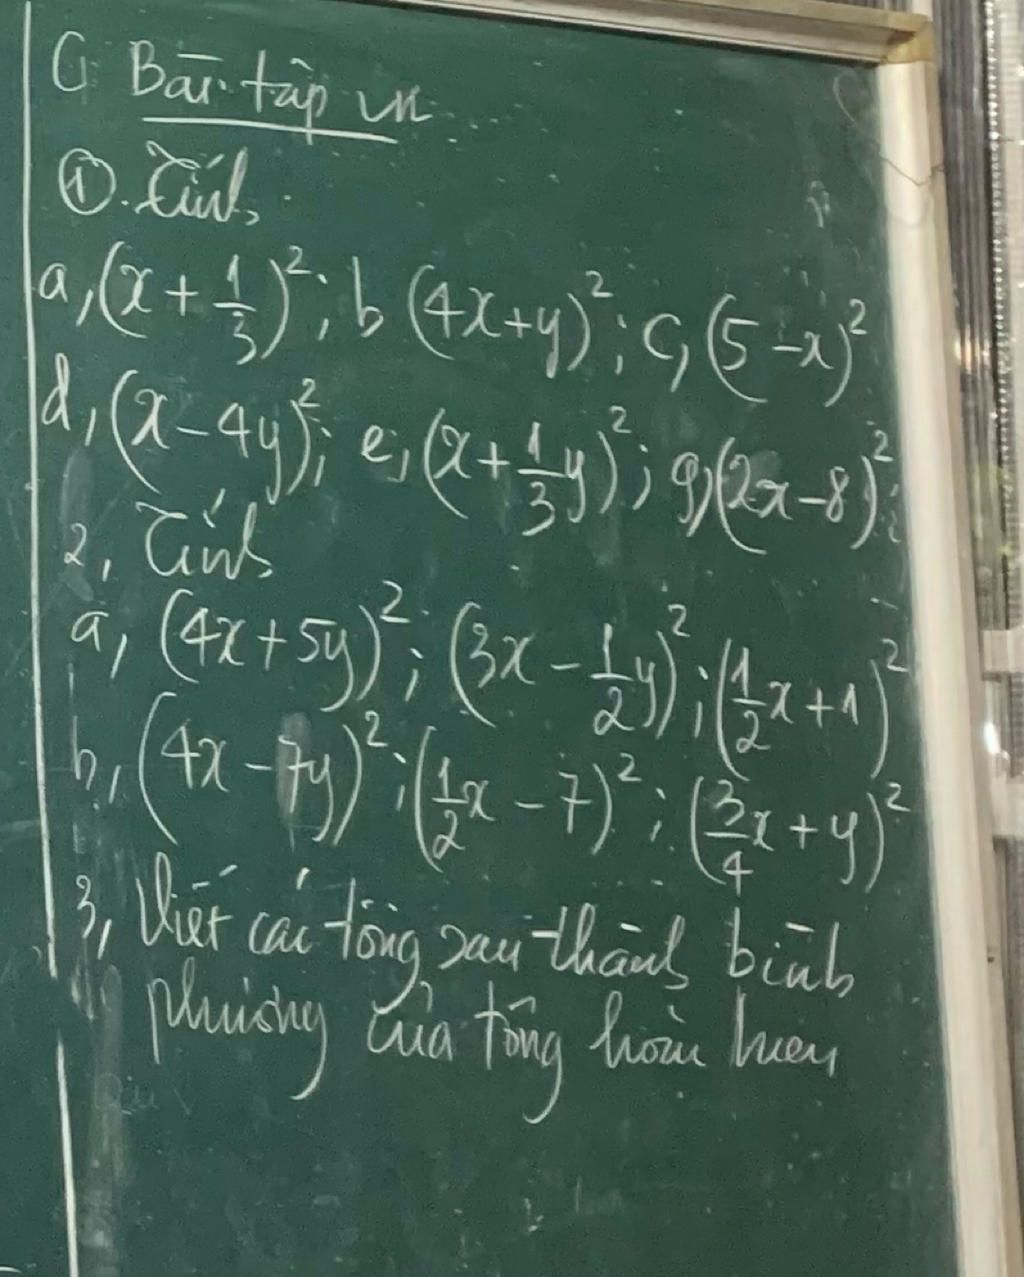 C. Bài tập VN
①. Tính
a, (x + 1/3)²; b (4x+y)²; c, (5 - x)²
d, (x - 4y)²; e, (x + 1/3 y)²; g) (2x - 8)²;
2, Tính
a, (4x + 5y)²; (3x - 1/2 y)²; (1/2 x + 1)²
b, (4x - 7y)²; (1/2 x - 7)²; (3/4 x + y)²
3, Viết các tổng sau thành bình
phương của tổng hoặc hiệu